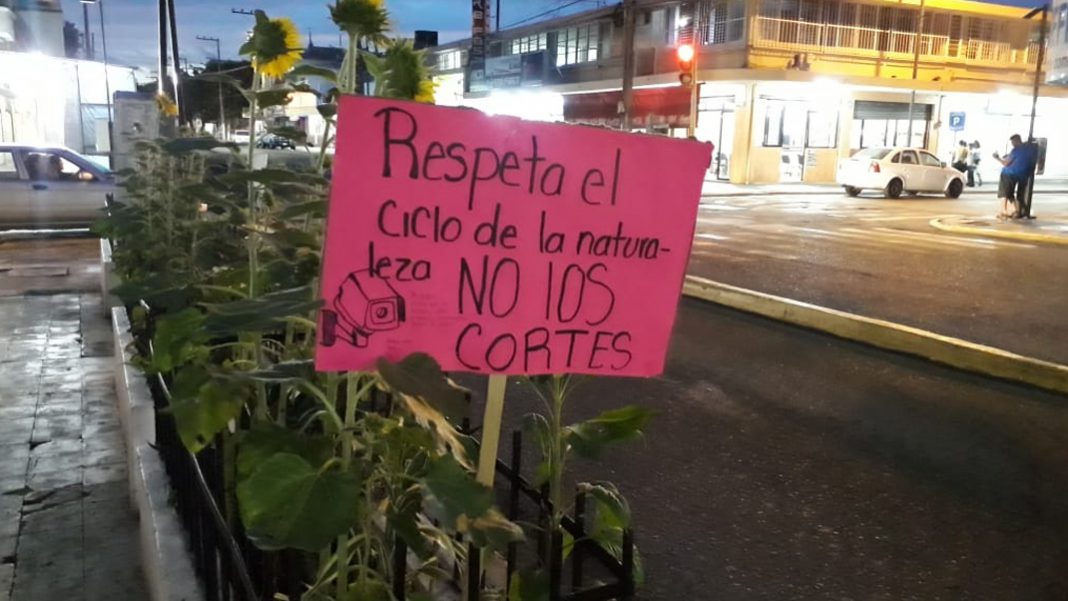 Respeta el
ciclo de la natura-
leza NO lOS
CORTES
P